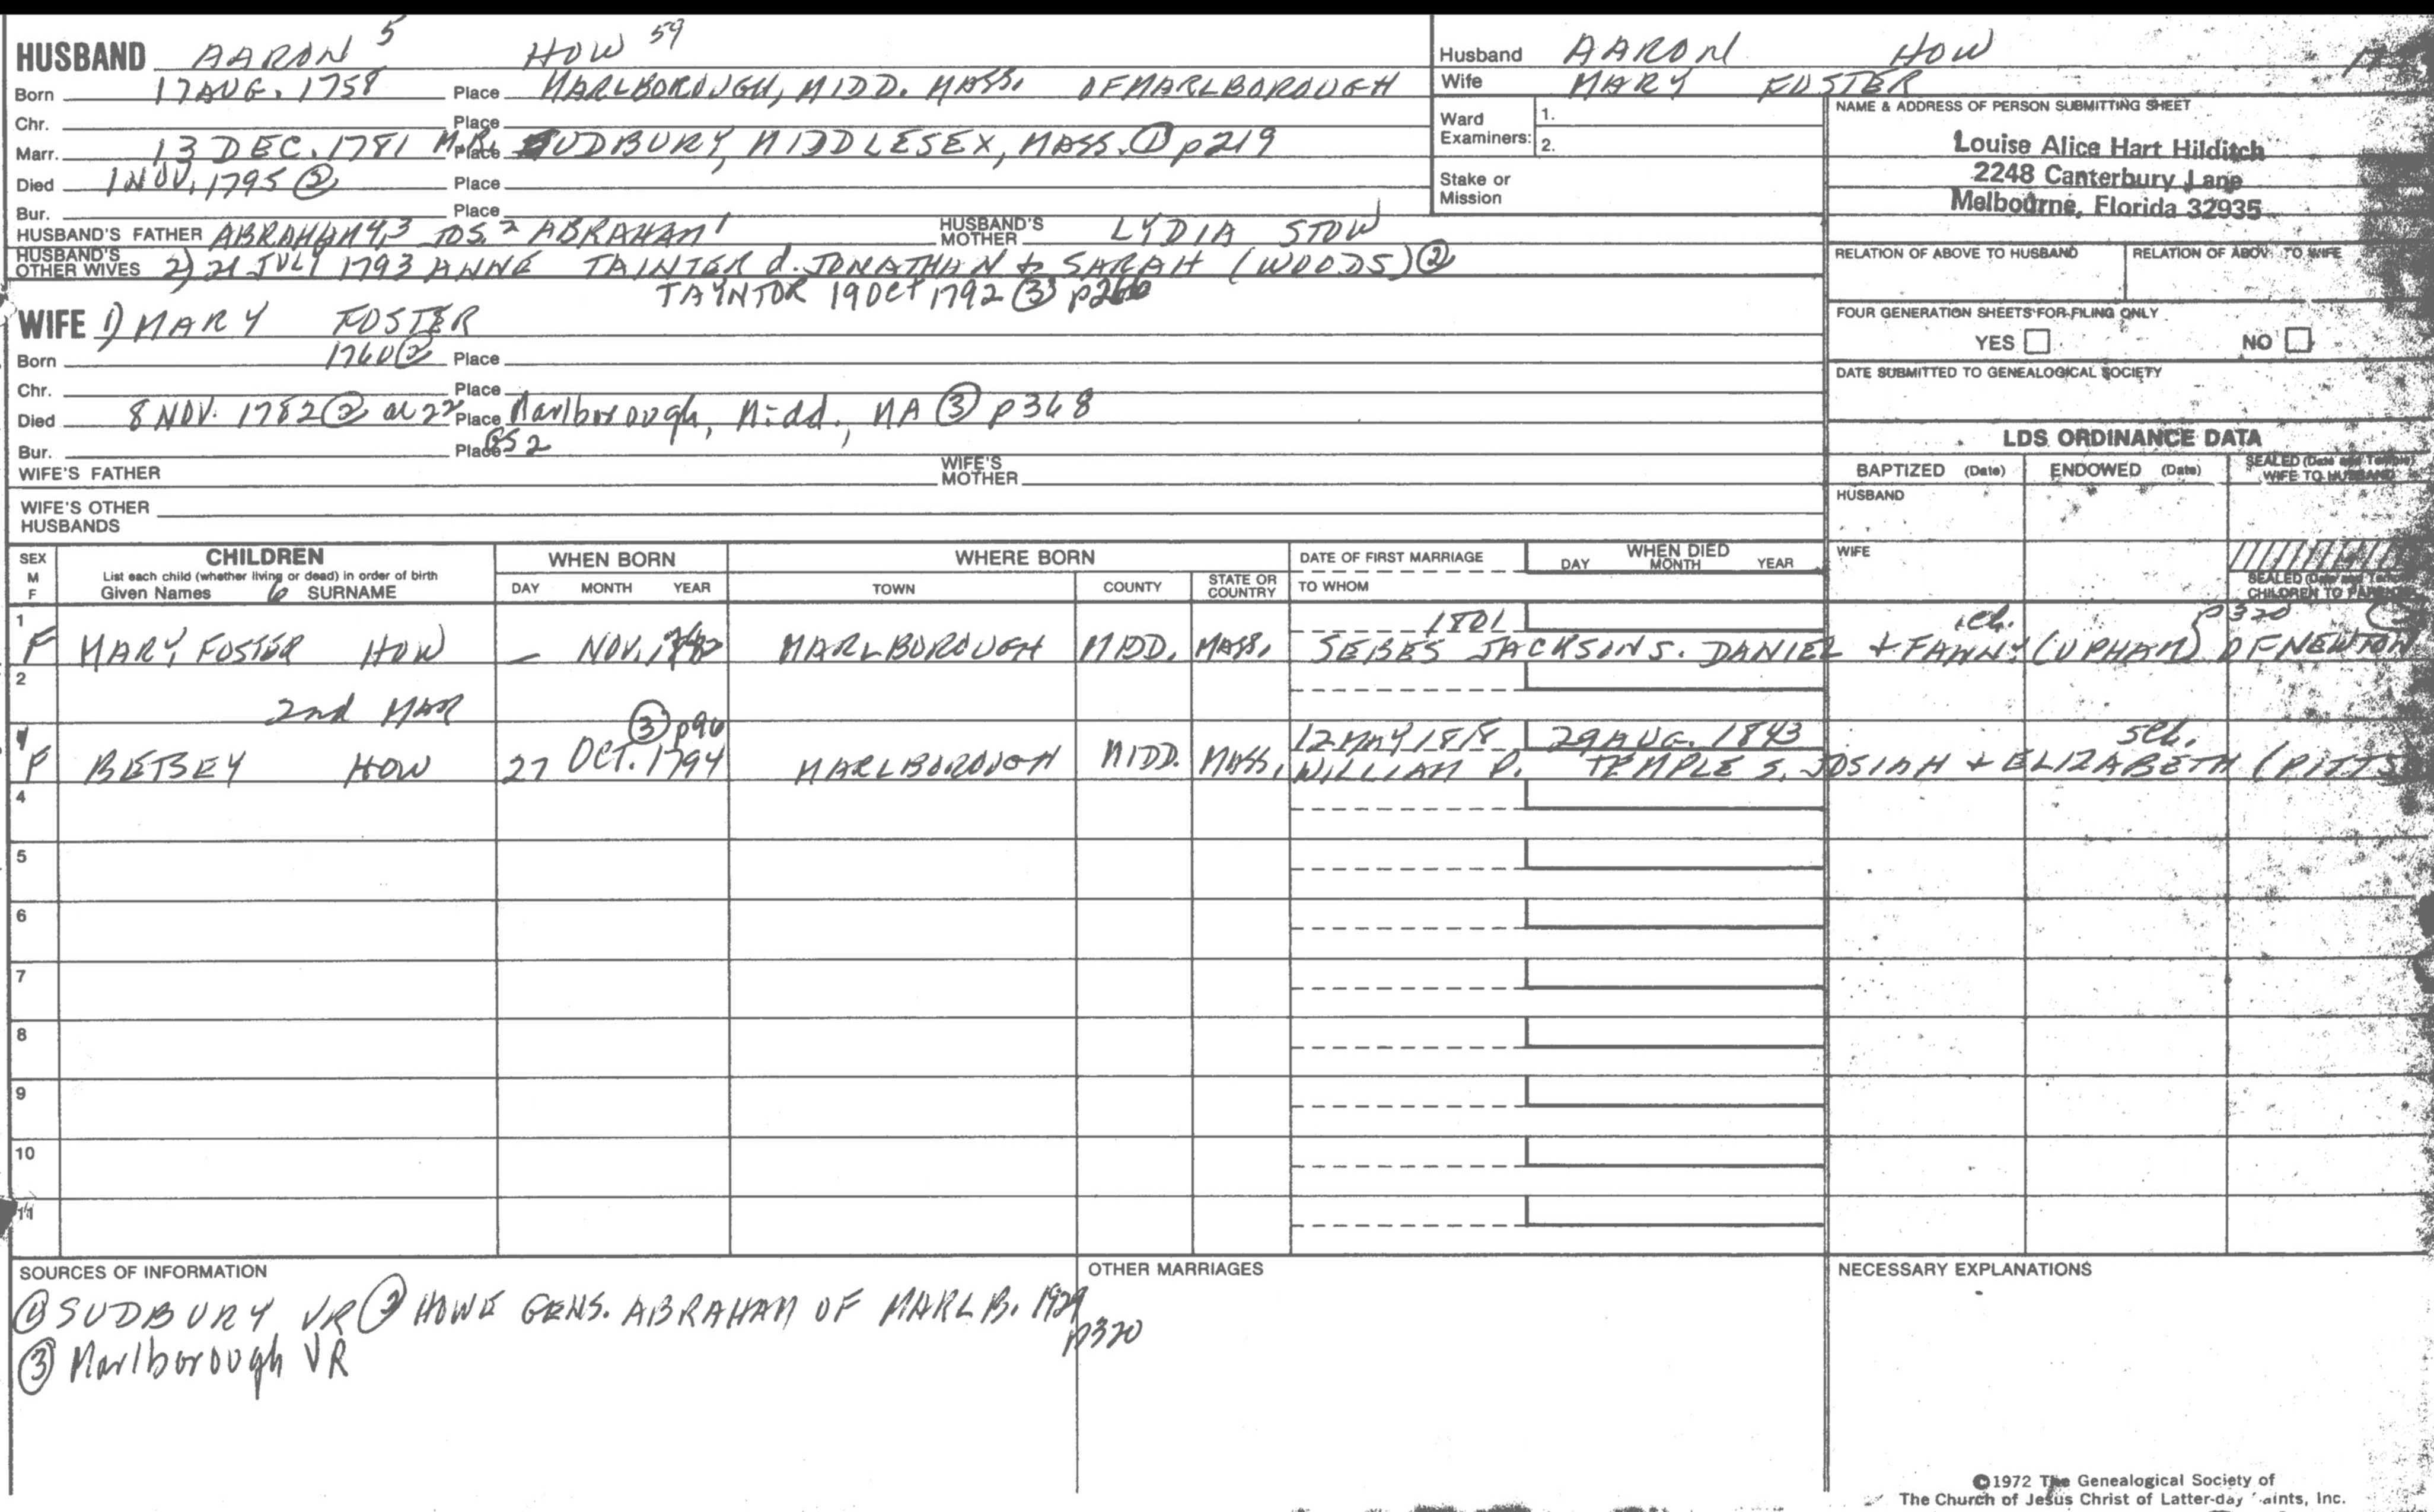 HUSBAND AARON 5 HOW 59
Born 17 AUG. 1758 Place MARLBOROUGH, MIDD. MASS. OF MARLBOROUGH
Chr. Place
Marr. 13 DEC. 1781 M.R. Place SUDBURY, MIDDLESEX, MASS. ① p219
Died 1 NOV. 1795 ② Place
Bur. Place
HUSBAND'S FATHER ABRAHAM 4,3 JOS. 2 ABRAHAM 1 HUSBAND'S MOTHER LYDIA STOW
HUSBAND'S OTHER WIVES 2) 21 JULY 1793 ANNE TAINTER d. JONATHAN & SARAH (WOODS) ②
TAYNTOR 19 Oct 1792 ③ p266
WIFE 1) MARY FOSTER
Born 1760 ② Place
Chr. Place
Died 8 NOV. 1782 ② ae 22 Place Marlborough, Midd., MA ③ p368
Bur. Place GS2
WIFE'S FATHER WIFE'S MOTHER
WIFE'S OTHER HUSBANDS
Husband AARON HOW
Wife MARY FOSTER
Ward Examiners: 1.
2.
Stake or Mission
NAME & ADDRESS OF PERSON SUBMITTING SHEET
Louise Alice Hart Hilditch
2248 Canterbury Lane
Melbourne, Florida 32935
RELATION OF ABOVE TO HUSBAND RELATION OF ABOVE TO WIFE
FOUR GENERATION SHEETS FOR FILING ONLY
YES NO
DATE SUBMITTED TO GENEALOGICAL SOCIETY
LDS ORDINANCE DATA
BAPTIZED (Date) ENDOWED (Date) SEALED (Date and Temple) WIFE TO HUSBAND
HUSBAND
WIFE
SEALED (Date and Temple) CHILDREN TO PARENTS
SEX M F CHILDREN WHEN BORN WHERE BORN DATE OF FIRST MARRIAGE WHEN DIED
List each child (whether living or dead) in order of birth
Given Names 6 SURNAME DAY MONTH YEAR TOWN COUNTY STATE OR COUNTRY TO WHOM DAY MONTH YEAR
1 1801 sch. p320
F MARY FOSTER HOW – NOV. 1782 MARLBOROUGH MIDD. MASS. SEBES JACKSON S. DANIEL & FANNY (UPHAM) OF NEWTON
2
2nd MAR
③ p96 12 MAY 1818 29 AUG. 1843 sch.
F BETSEY HOW 27 OCT. 1794 MARLBOROUGH MIDD. MASS. WILLIAM P. TEMPLE S. JOSIAH & ELIZABETH (PITTS
4
5
6
7
8
9
10
11
SOURCES OF INFORMATION
① SUDBURY VR ② HOWE GENS. ABRAHAM OF MARLB. 1929
p320
③ Marlborough VR
OTHER MARRIAGES
NECESSARY EXPLANATIONS
©1972 The Genealogical Society of
The Church of Jesus Christ of Latter-day Saints, Inc.